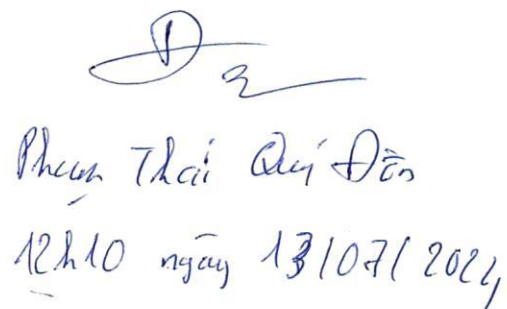 Phạm Thái Quý
12h10 ngày 13/07/2024